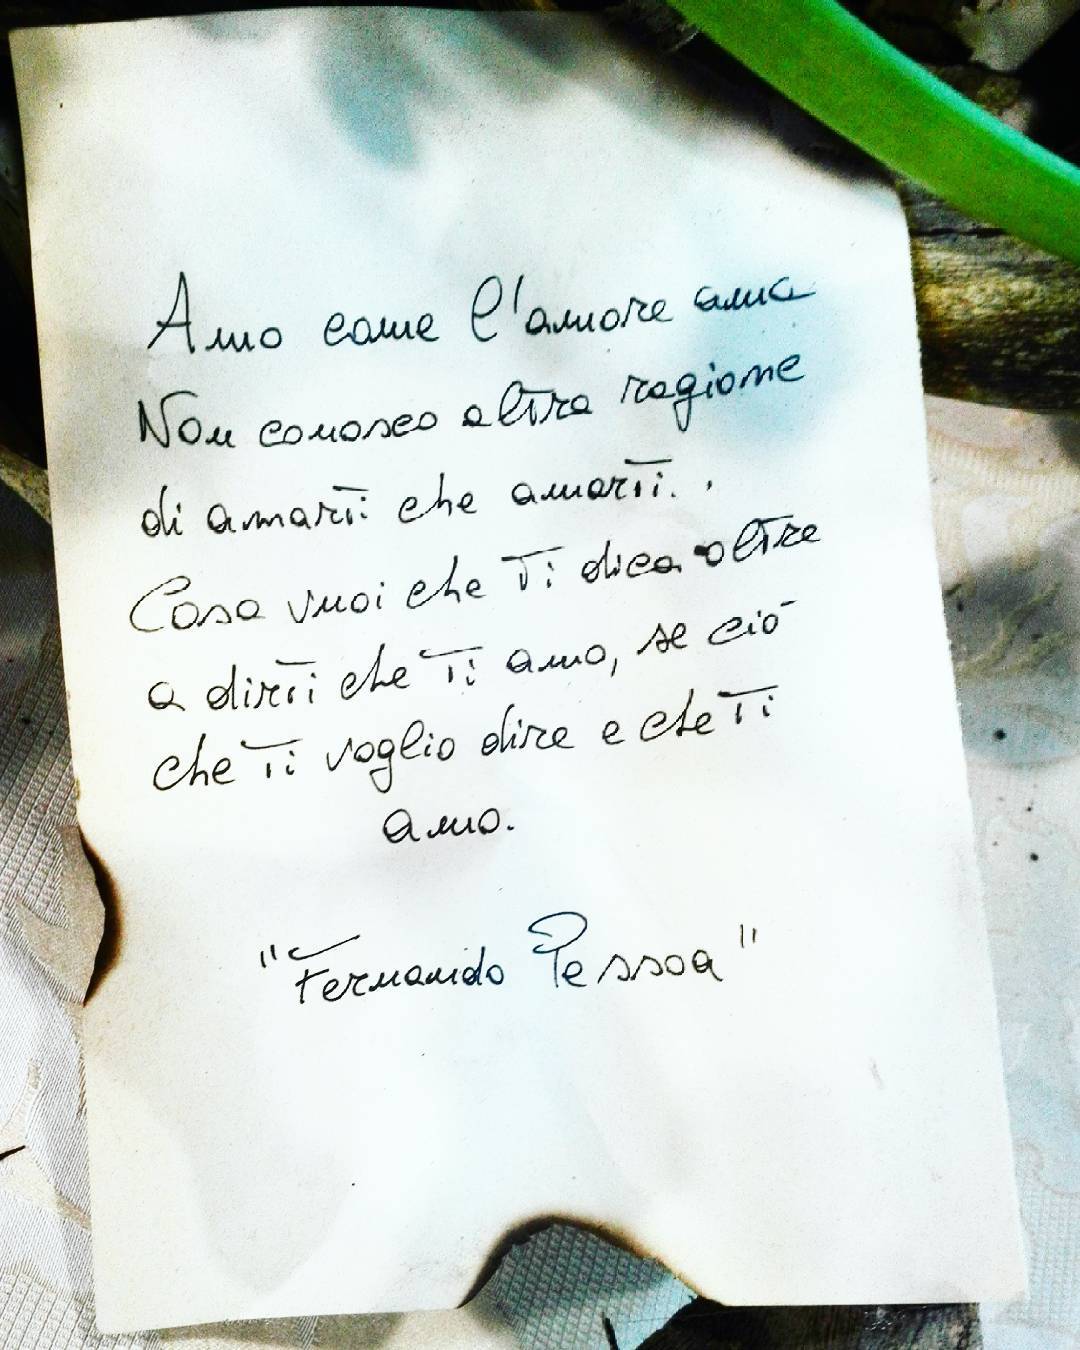 Amo come l'amore ama
Non conosco altra ragione
di amarti che amarti..
Cosa vuoi che Ti dica oltre
a dirti che Ti amo, se ciò
che Ti voglio dire e che Ti
amo.
"Fernando Pessoa"